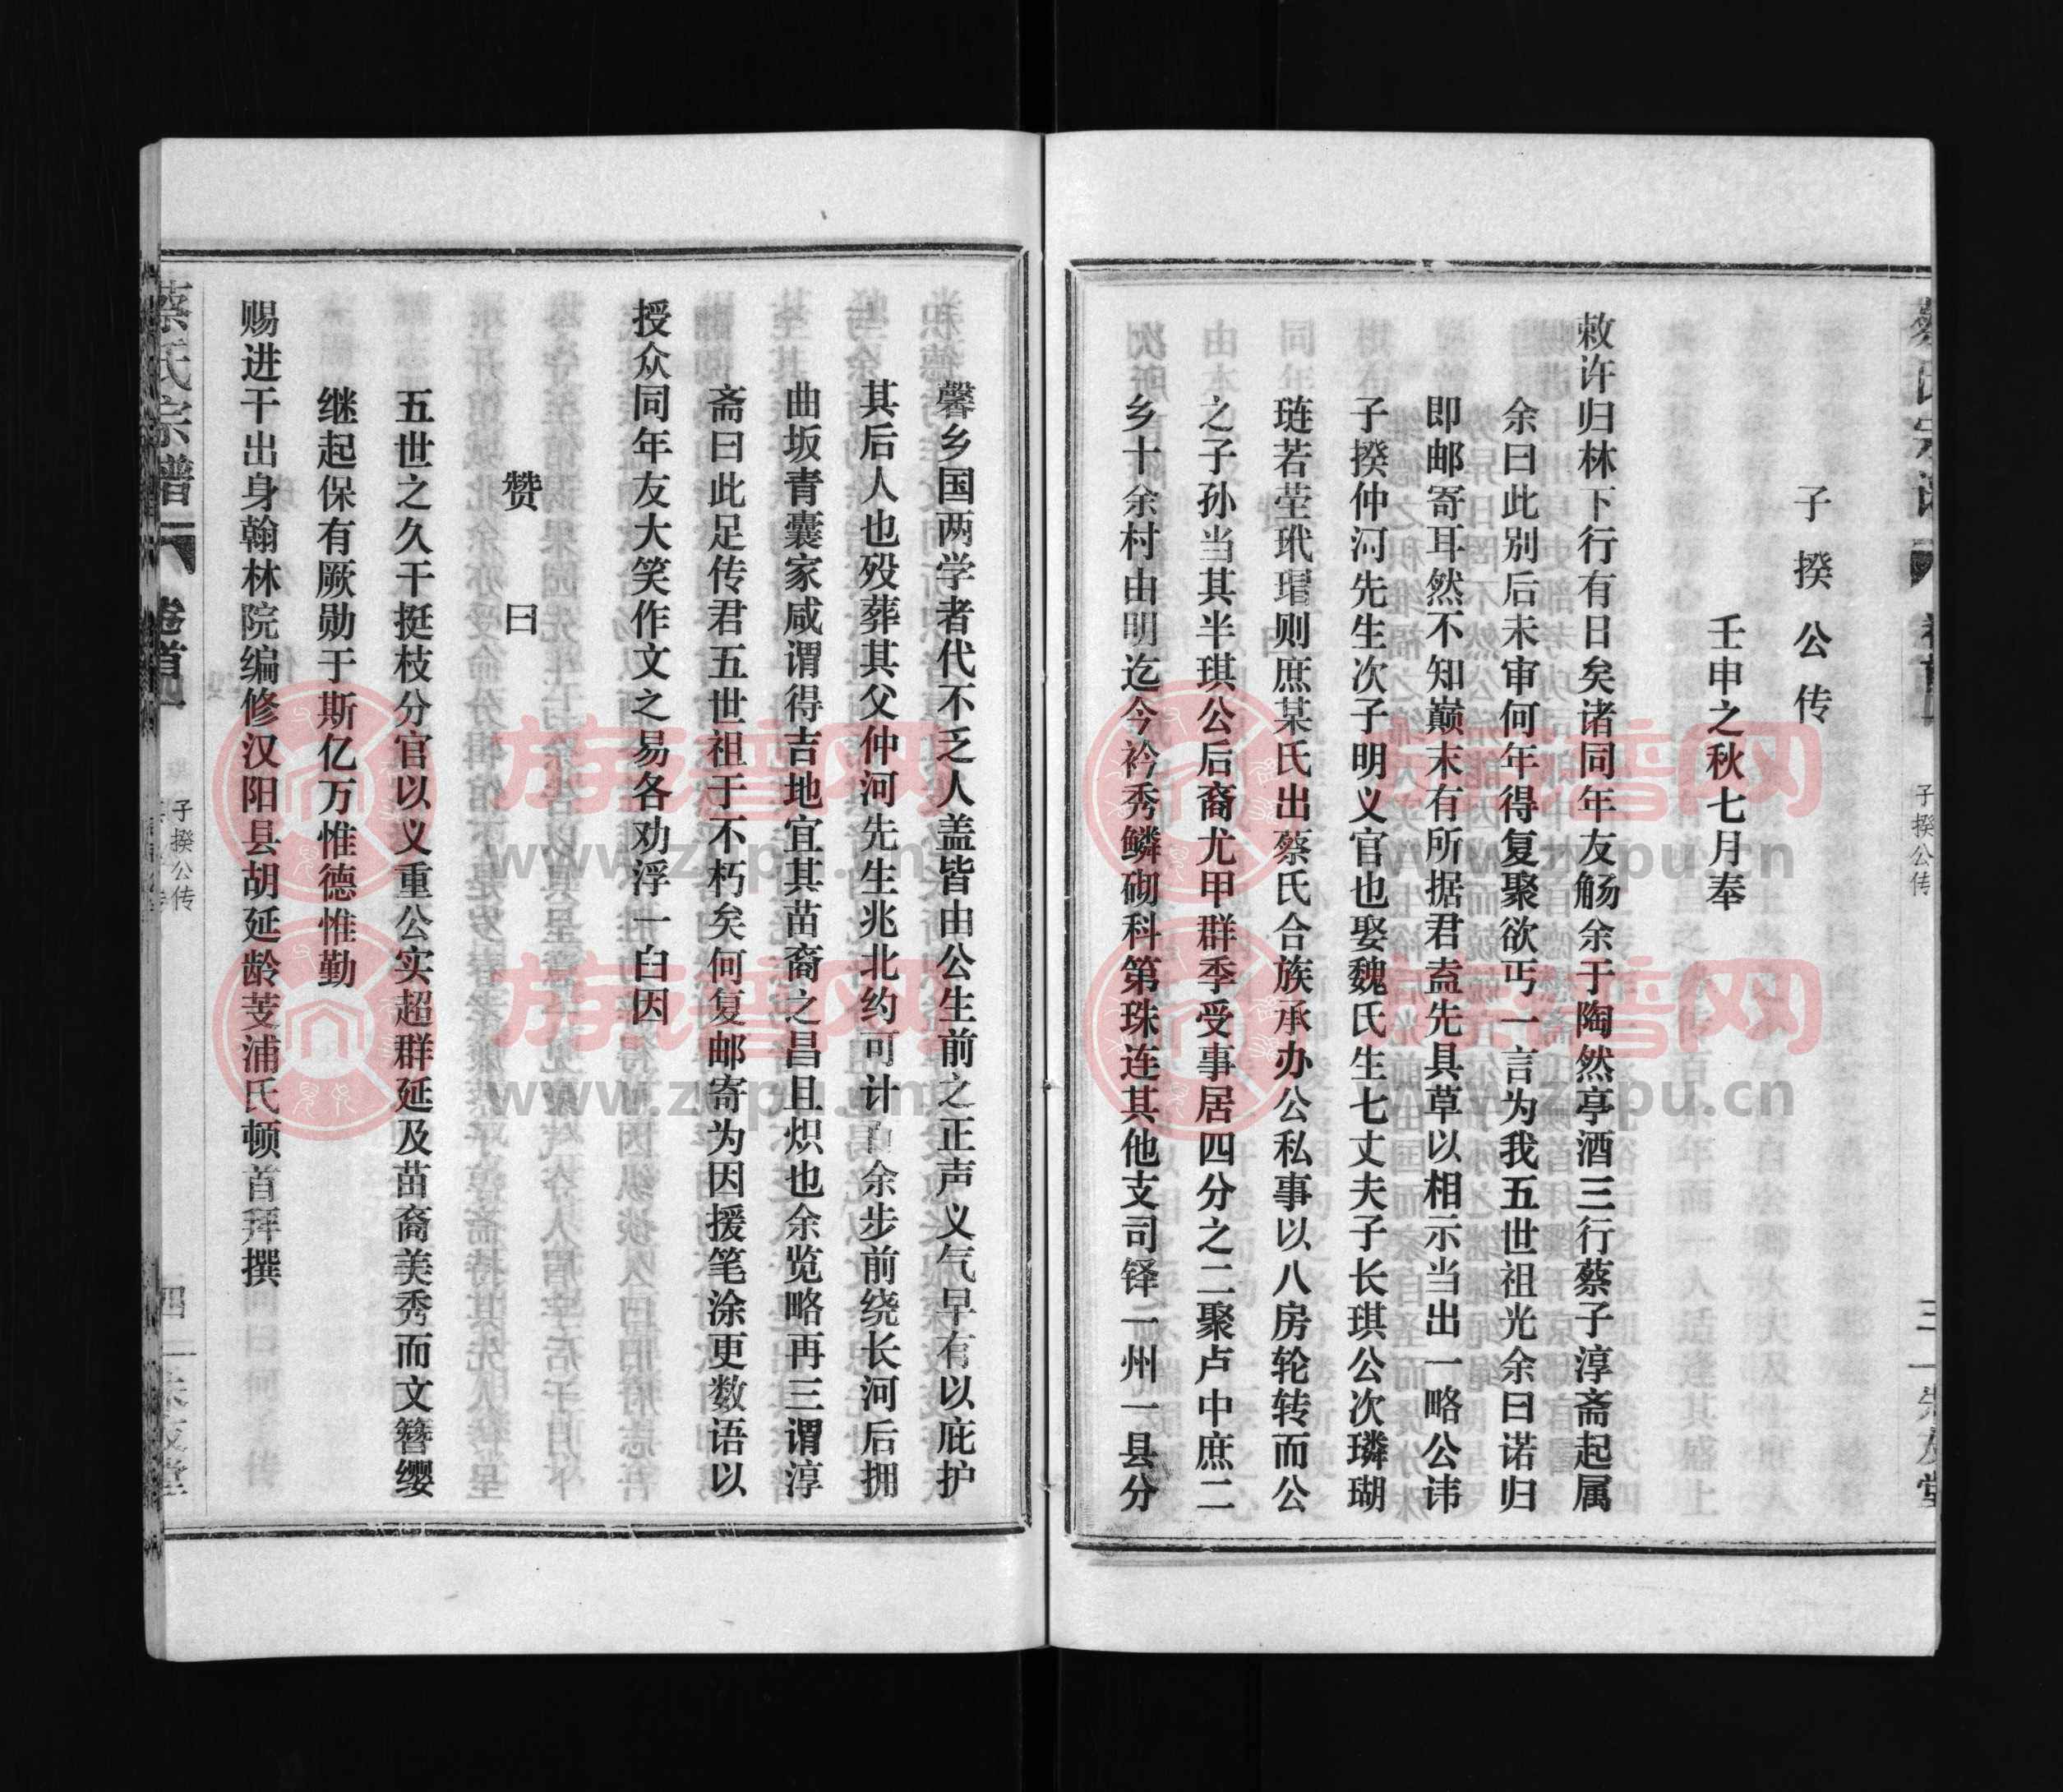 子揆公传
壬申之秋七月奉
敕许归林下行有日矣诸同年友觞余于陶然亭酒三行蔡子淳斋起属
余曰此别后未审何年得复聚欲丐一言为我五世祖光余曰诺归
即邮寄耳然不知巅末有所据君盍先具草以相示当出一略公讳
子揆仲河先生次子明义官也娶魏氏生七丈夫子长琪公次璘瑚
琏若莹玳瑁则庶某氏出蔡氏合族承办公私事以八房轮转而公
之子孙当其半琪公后裔尤甲群季受事居四分之二聚卢中庶二
乡十余村由明迄今衿秀鳞砌科第珠连其他支司铎一州一县分
子揆公传
三
馨乡国两学者代不乏人盖皆由公生前之正声义气早有以庇护
其后人也殁葬其父仲河先生兆北约可计百余步前绕长河后拥
曲坂青囊家咸谓得吉地宜其苗裔之昌且炽也余览略再三谓淳
斋曰此足传君五世祖于不朽矣何复邮寄为因援笔涂更数语以
授众同年友大笑作文之易各劝浮一白因
赞曰
五世之久干挺枝分官以义重公实超群延及苗裔美秀而文簪缨
继起保有厥勋于斯亿万惟德惟勤
赐进干出身翰林院编修汉阳县胡延龄芰浦氏顿首拜撰
蔡氏宗谱
卷首四
子揆公传
四
族谱网
www.zupu.cn
族谱网
www.zupu.cn
族谱网
www.zupu.cn
族谱网
www.zupu.cn